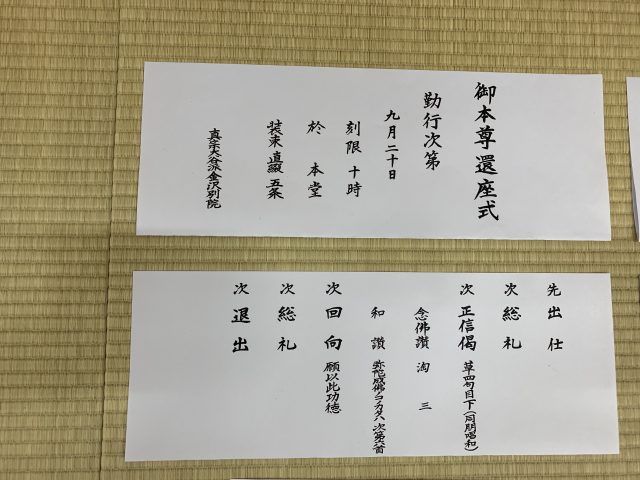 御本尊還座式
勤行次第
九月二十日
刻限 十時
於 本堂
装束 直綴 五条
真宗大谷派金沢別院
先 出仕
次 総礼
次 正信偈 草四句目下(同朋唱和)
念佛讃 淘三
和讃 弥陀成佛ノコノカタハ 次第六首
次 回向 願以此功徳
次 総礼
次 退出